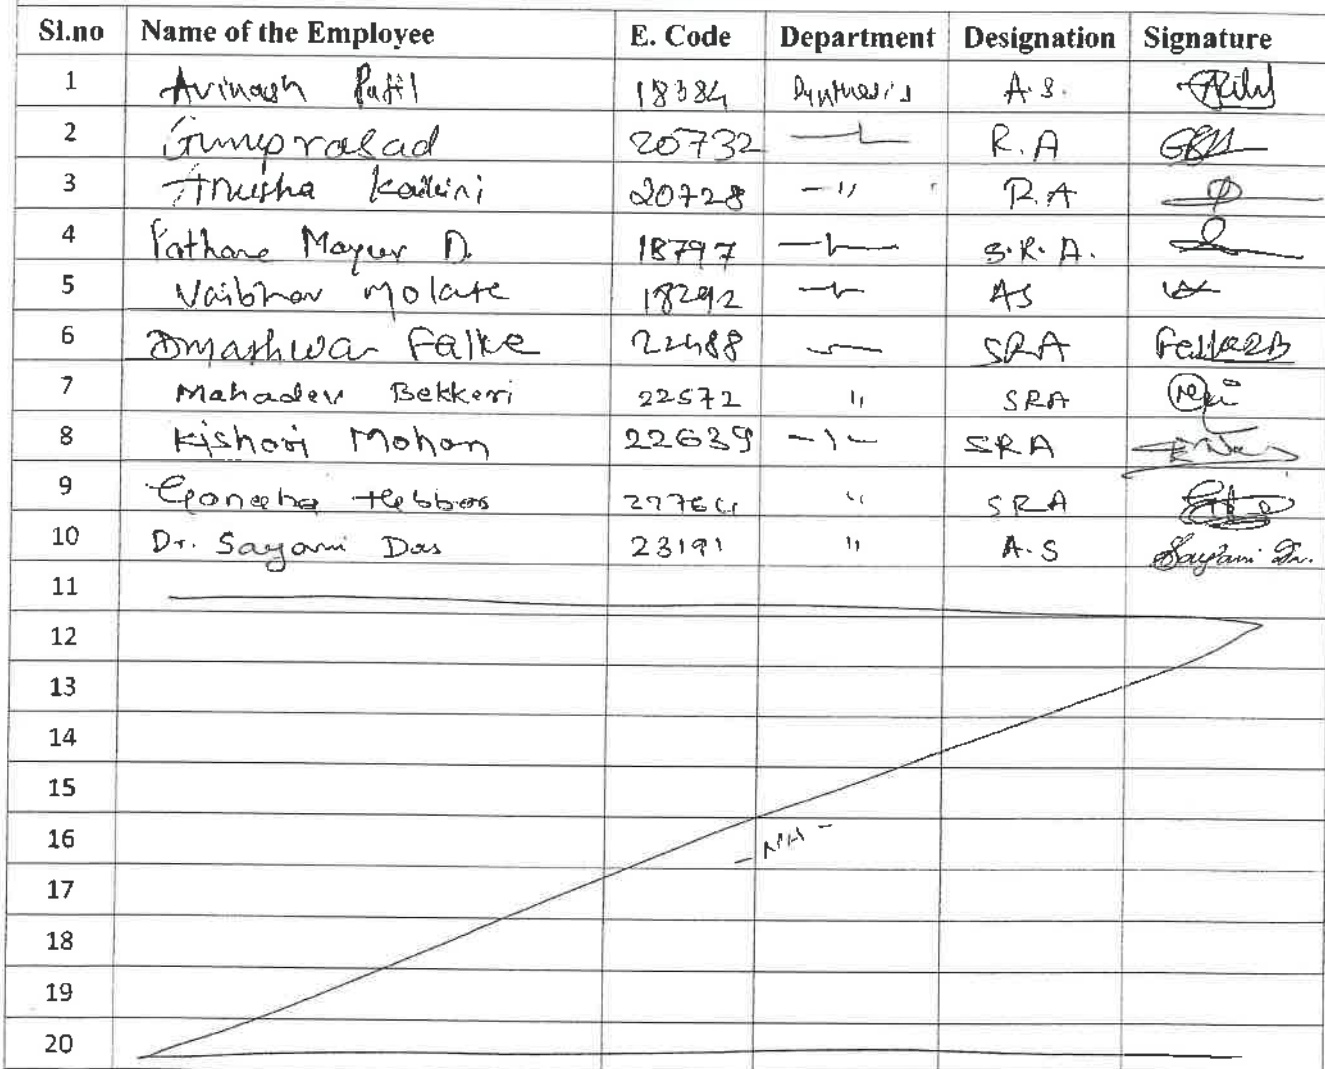 Sl.no Name of the Employee E. Code Department Designation Signature
1 Avinash Patil 18384 Synthesis A.S.
2 Guruprasad 20732 —"— R.A
3 Anusha 20728 —"— R.A
4 Pathare Mayur D. 18797 —"— S.R.A.
5 Vaibhav Molate 18292 —"— AS
6 Falke 22488 —"— SRA
7 Mahadev Bekkeri 22572 " SRA
8 Kishori Mohan 22639 —"— SRA
9 Hebbar " SRA
10 Dr. Sayani Das 23191 " A.S Sayani Das.
11
12
13
14
15
16 - NA -
17
18
19
20